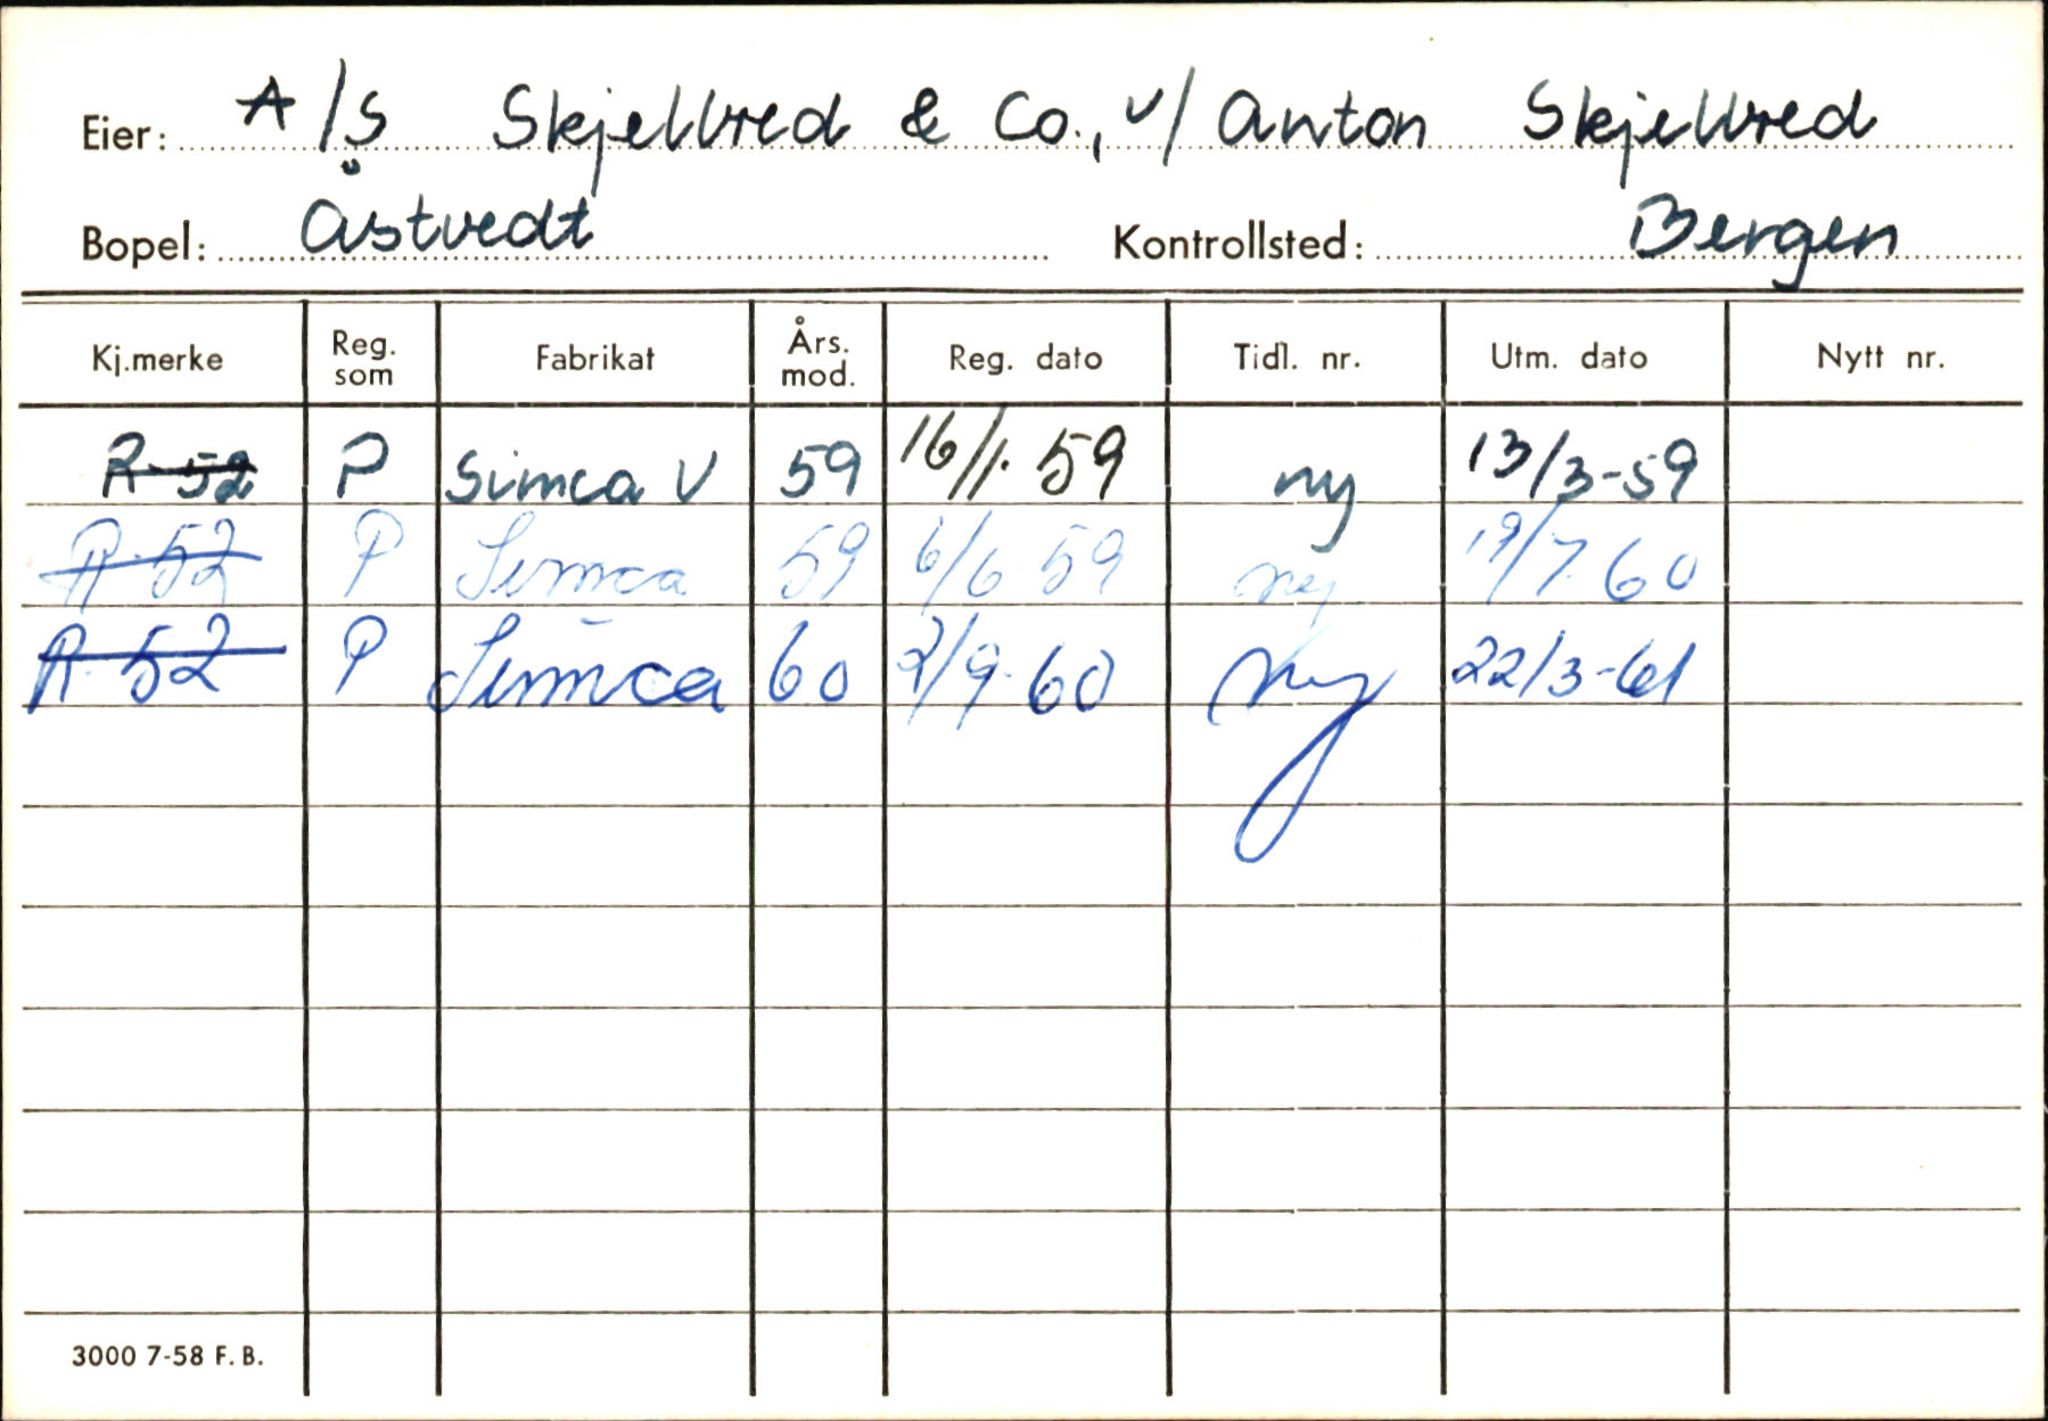 Eier: A/S Skjellvred & Co., v/ Anton Skjellvred
Bopel: Åstvedt Kontrollsted: Bergen
Kj.merke Reg. som Fabrikat Års. mod. Reg. dato Tidl. nr. Utm. dato Nytt nr.
R-52 P Simca V 59 16/1.59 ny 13/3-59
R-52 P Simca 59 6/6.59 ny 19/7.60
R-52 P Simca 60 2/9.60 ny 22/3-61
3000 7-58 F. B.